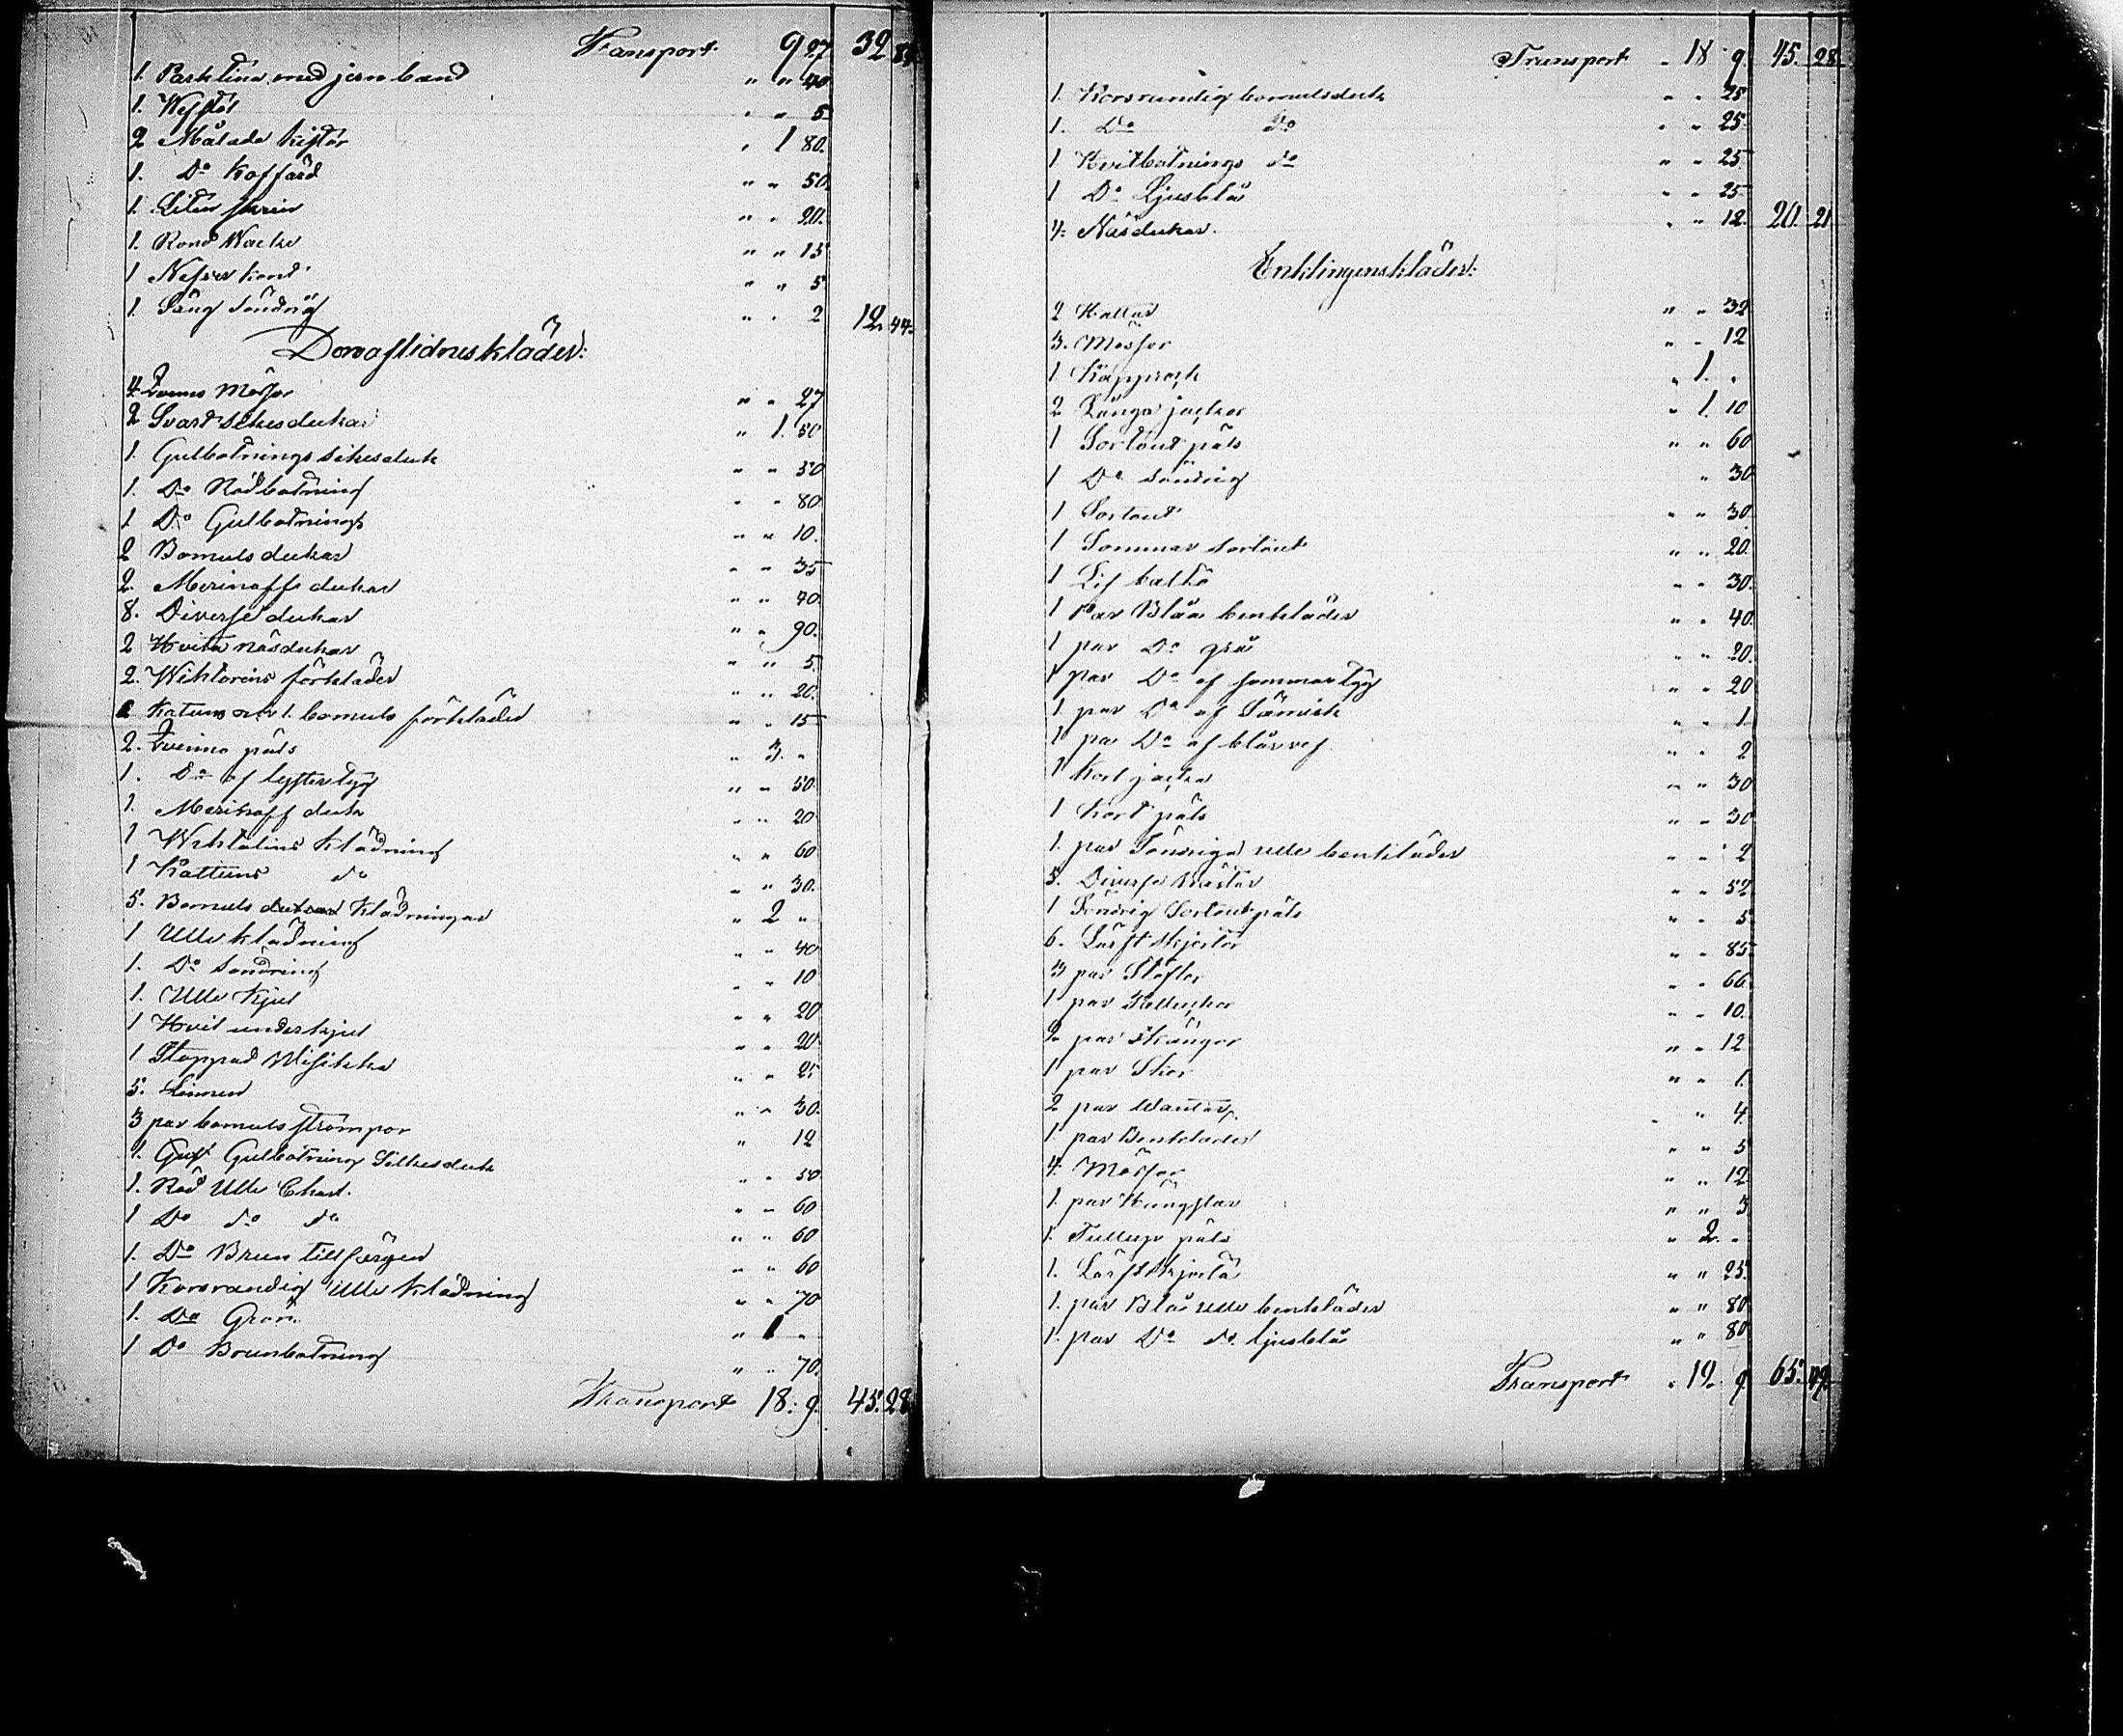 Transport 9 27 32 84
1. Parktina med jern band " " 40
1. Kista " " 5
2 Målade kistor " 1 80.
1. Do Koffärd " " 50.
1. Liten skrin " " 20.
1. Rond Wacka " " 15
1 Nefver kont " " 5
1. Säng söndrig " " 2 12. 44.
Den aflidnes kläder:
4. mössor " " 27
2 Svart silkesdukar " 1. 50
1. Gulbotnings silkesduk " " 50
1. Do Rödbotning " " 80.
1 Do Gulbotnings " " 10.
2 Bomulsdukar " " 35
2. Merinoffs dukar " " 40
8. Diverse dukar " " 90.
2 Hvita näsdukar " " 5.
2. Wiktorins förkläder " " 20.
2 Katuns och 1. bomuls förkläder " " 15
2. päls " 3. "
1. Do af lyster tyg " " 50.
1. Merinoff duk " " 20
1 Wiktolins klädning " " 60
1 Kattuns do " " 30.
5. Bomuls klädningar " 2 "
1 Ulle klädning " " 40
1. Do Söndring " " 10
1. Ulle Kjol " " 20
1 Hvit underkjol " " 20
1 Stoppad Misikka " " 25
5. Linnen " " 30.
3 par bomuls strömpor " 12
1. Gulbotning Silkesduk " " 50
1. Röd Ulle Chal. " " 60
1 Do do do " " 60
1. Do Brun till färgen " " 60
1 Korsrandig Ulle klädning " " 70
1. Do Grön. " 1 "
1 Do Brunbotning " " 70.
Transport 18. 9. 45. 28
Transport " 18 9. 45. 28
1. Korsrandig bomulsduk " " 25
1. Do Do " " 25.
1 Hvitbotnings do " " 25
1 Do Ljusblå " " 25
4. Näsdukar. " " 12. 20. 21
Enklingens kläder:
2 Hattar " " 32
3. Mössor " " 12
1 Kapprock " 1. "
2 Långa jackor " 1. 10
1 Sortout päls " " 60
1 Do söndrig " 30
1 Sortout " " 30.
1 Sommar sortout " " 20.
1 Lif bälte " " 30.
1 Par Blåa benkläder " " 40.
1 par Do grå " " 20.
1 par Do af sommartyg " " 20
1 par Do af Sämisk " " 1
1 pa Do af blårväf " " 2
1 Kort jacka " " 30
1 Kort päls " " 30
1. par Söndriga ulle benkläder " " 2
5. Diverse Västar " " 52
1 Söndrig Sortoutpäls " " 5
6. Lärft skjortor " " 85.
3 par Stöflor " " 66.
1 par " " 10.
2 par Skångor " " 12
1 par Skor " " 1.
2 par Wantar " " 4.
1. par Benkläder " " 5
4. Mössor " " 12
1. par Hängslar " " 3
1. Tulup päls " 2. "
1. Lärft skjorta " " 25.
1. par Blå ulle benkläder " " 80
1. par Do do ljusblå " " 80
Transport " 19. 9. 65. 49.